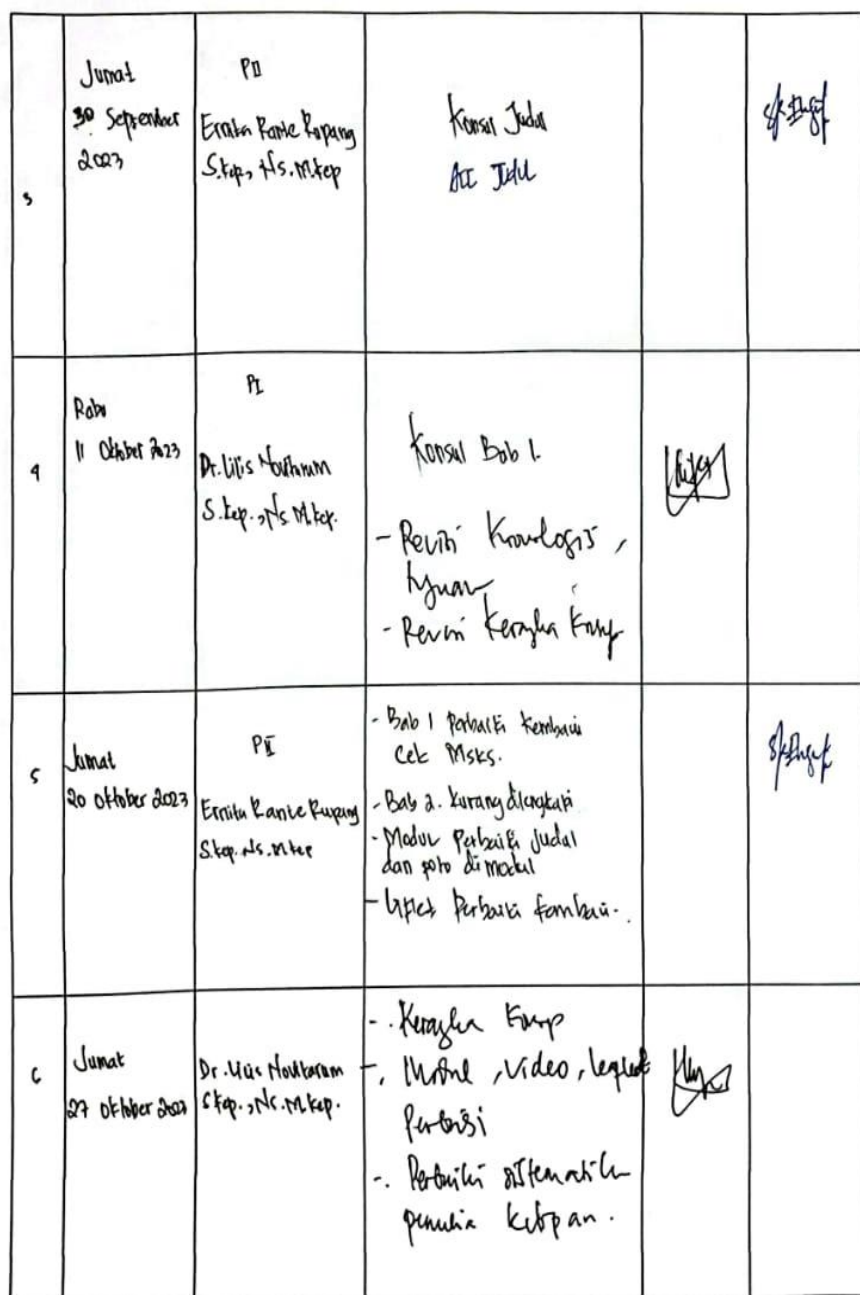 3
Jumat
30 September
2023
PII
Ernita Rante Rupang
S.kep., Ns. M.kep
Konsul Judul
ACC Judul
4
Rabu
11 Oktober 2023
PI
Dr. Lilis Novitarum
S.kep., Ns. M.kep.
Konsul Bab 1.
- Revisi Kronologis,
tujuan
- Revisi Kerangka Konsep
5
Jumat
20 Oktober 2023
PII
Ernita Rante Rupang
S.kep. Ns. M.kep
- Bab 1 Perbaiki Kembali
Cek MSKS.
- Bab 2. Kurang dilengkapi
- Modul Perbaiki Judul
dan foto di modul
- Liflet Perbaiki kembali.
6
Jumat
27 Oktober 2023
Dr. Lilis Novitarum
S.kep., Ns. M.kep.
-. Kerangka Konsep
-. , Video, leaflet
-. Perbaiki sistematik